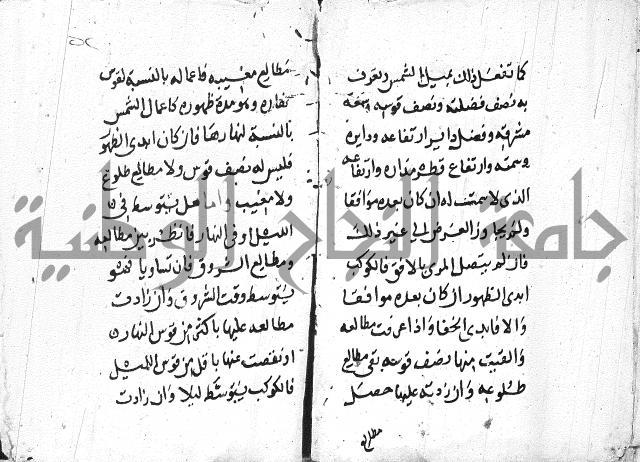 كما تفعل ذلك بميل الشمس ويعرف
به نصف فضلته ونصف قوسه وسعة
مشرقه وفضل داير ارتفاعه ودايره
وسمته وارتفاع قطر مداره وارتفاعه
الذي لا سمت له ان كان بعده موافقا
ولم يجاوز العرض الى غير ذلك
فان لم يتصل المرى بالافق فالكوكب
ابدى الظهور ان كان بعده موافقا
والا فابدى الخفا واذا عرفت مطالعه
والقيت منها نصف قوسه بقى مطالع
طلوعه وان زدته عليها حصل
مطالع
مطالع مغيبه فاعماله بالنسبة لقوس
نهاره وهو مدة ظهوره كاعمال الشمس
بالنسبة لنهارها فان كان ابدى الظهور
فليس له نصف قوس ولا مطالع طلوع
ولا مغيب واما هل يتوسط في
الليل او في النهار فانظر بين مطالعه
ومطالع الشروق فان تساويا فهو
يتوسط وقت الشروق وان زادت
مطالعه عليها باكثر من قوس النهار
او نقصت عنها باقل من قوس الليل
فالكوكب يتوسط ليلا وان زادت
جامعة النجاح الوطنية